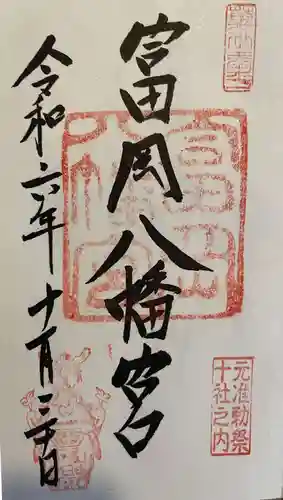 富岡八幡宮
元准勅祭
十社之内
令和六年十月三十日